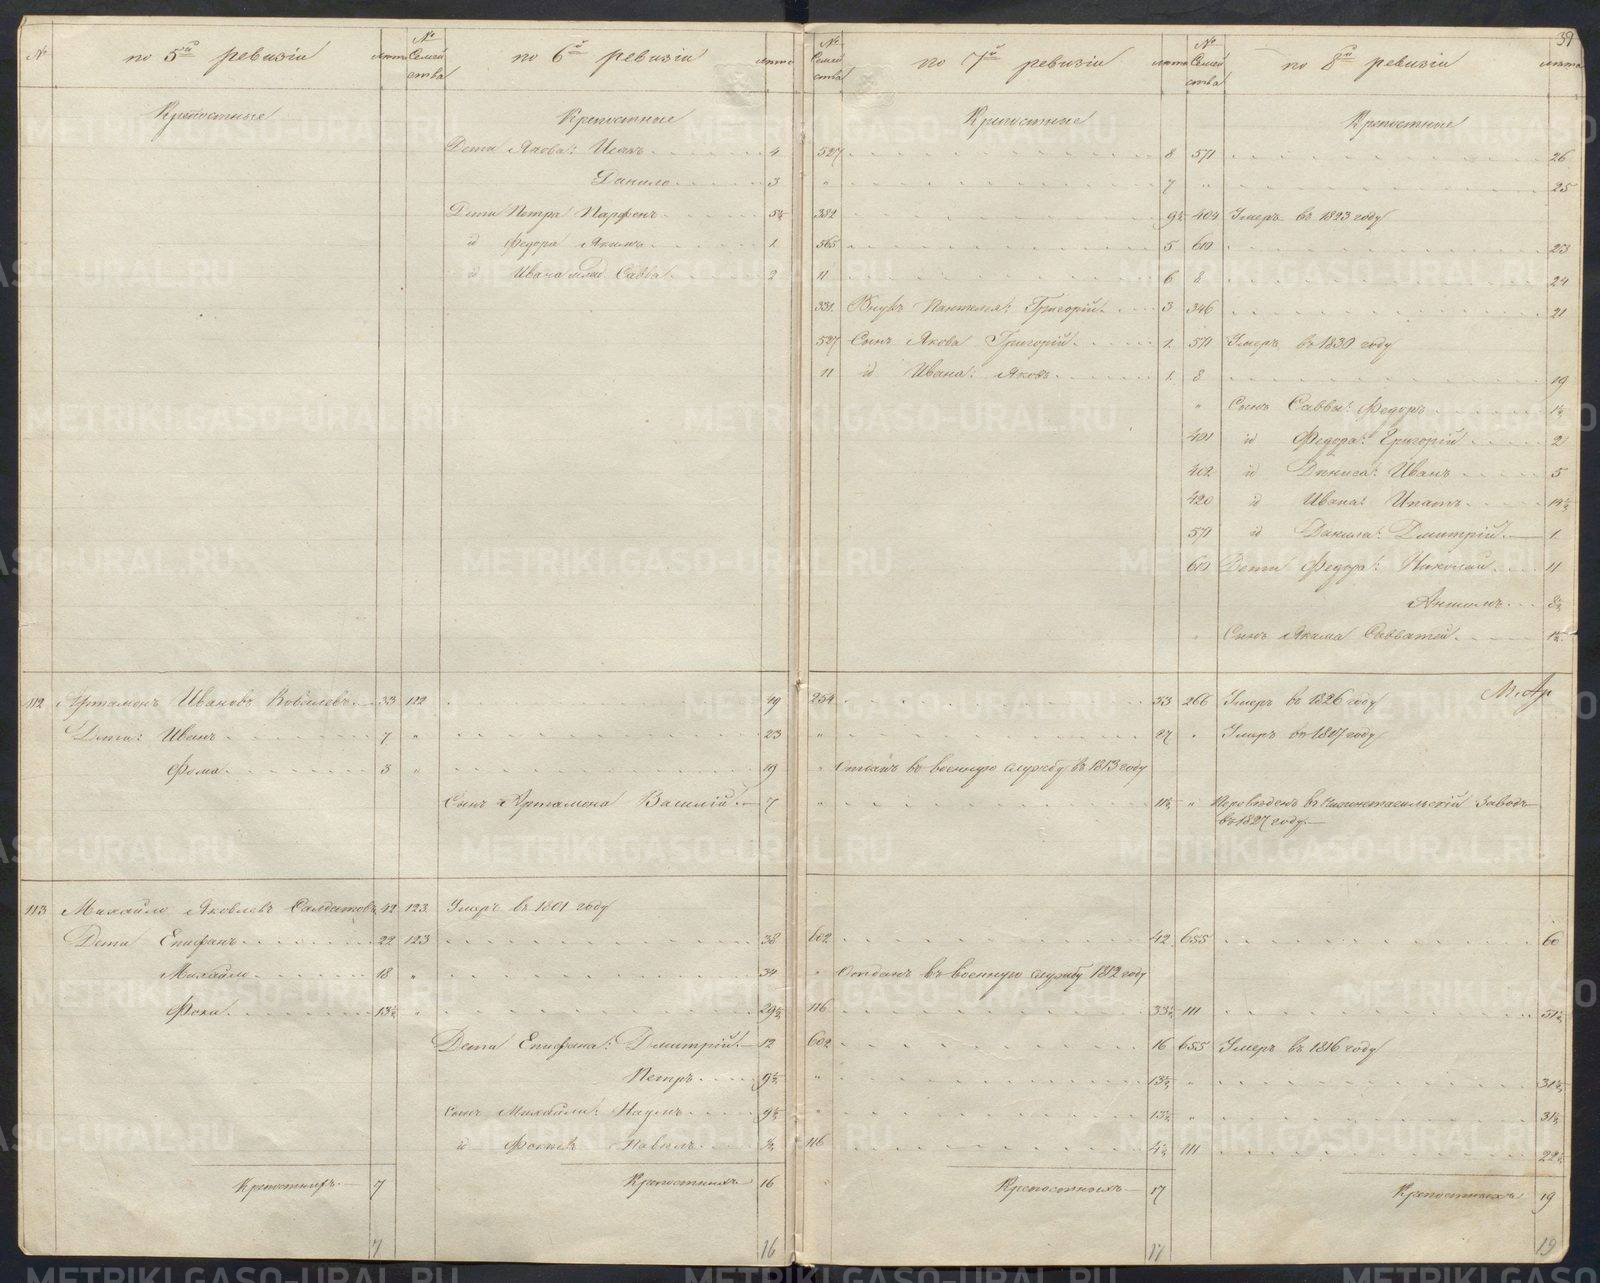 39
№ по 5й ревизіи лета № Семей ства по 6й ревизіи лета № Семей ства по 7й ревизіи лета № Семей ства по 8й ревизіи лета
Крепостные Крепостные Крепостные Крепостные
Дети Якова: Исакъ 4 527 8 571 26
Данило 3 " 7 " 25
Дети Петра Парфенъ 5½ 382 9½ 404 Умеръ въ 1823 году
id Федора Якимъ 1 565 5 611 23
id Ивана Савва 2 11 6 8 24
331 Внукъ Пантелея: Григорій 3 346 21
527 Сынъ Якова Григорій 1 571 Умеръ въ 1830 году
11 id Ивана: Яковъ 1 8 19
" Сынъ Саввы: Федоръ 1½
401 id Федора: Григорій 2
402 id Дениса: Иванъ 5
420 id Ивана: Ипатъ
571 id Данила: Дмитрій 1
611 Дети Федора: Николай 11
8½
Сынъ Якима Савватей
112 Артамонъ Ивановъ Ковалевъ 33 122 49 254 53 266 Умеръ въ 1826 году
Дети: Иванъ 7 " 23 " 27 " Умеръ въ 1817 году
Фома 3 " 19 " Отданъ въ военную службу въ 1813 году
Сынъ Артамона Василій 7 " 11½ " Переведенъ въ Нижнетагильскій Заводъ
въ 1827 году
113 Михайло Яковлевъ Салдатовъ 42 123 Умеръ въ 1801 году
Дети Епифанъ 22 123 38 602 42 655 60
Михайло 18 " 34 " Отданъ въ военную службу 1812 году
Фока 13½ " 29½ 116 33½ 111 51½
Дети Епифана: Дмитрій 12 602 16 655 Умеръ въ 1816 году
Петръ 9½ " 13½ " 31½
Сынъ Михайлы: Наумъ 9½ " 13½ " 31½
id Павелъ ½ 116 4½ 111 22½
Крепостныхъ 7 Крепостныхъ 16 Крепостныхъ 17 Крепостныхъ 19
7 16 17 19
METRIKI.GASO-URAL.RU